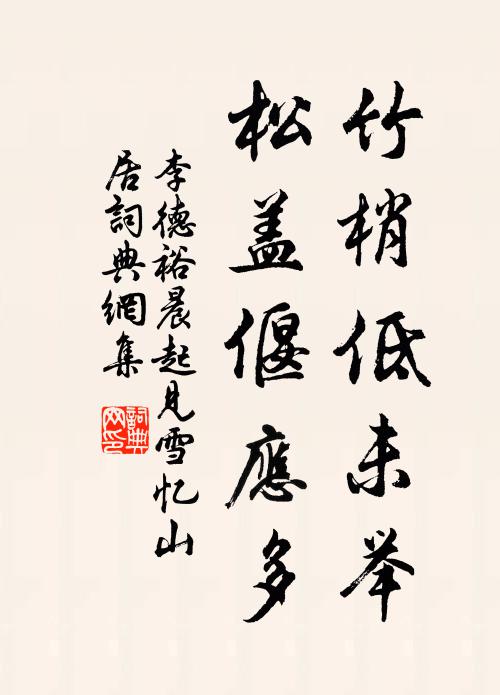 竹梢低未举
松盖偃應多
李德裕晨起見雪忆山
居詞典網集
詞典网印